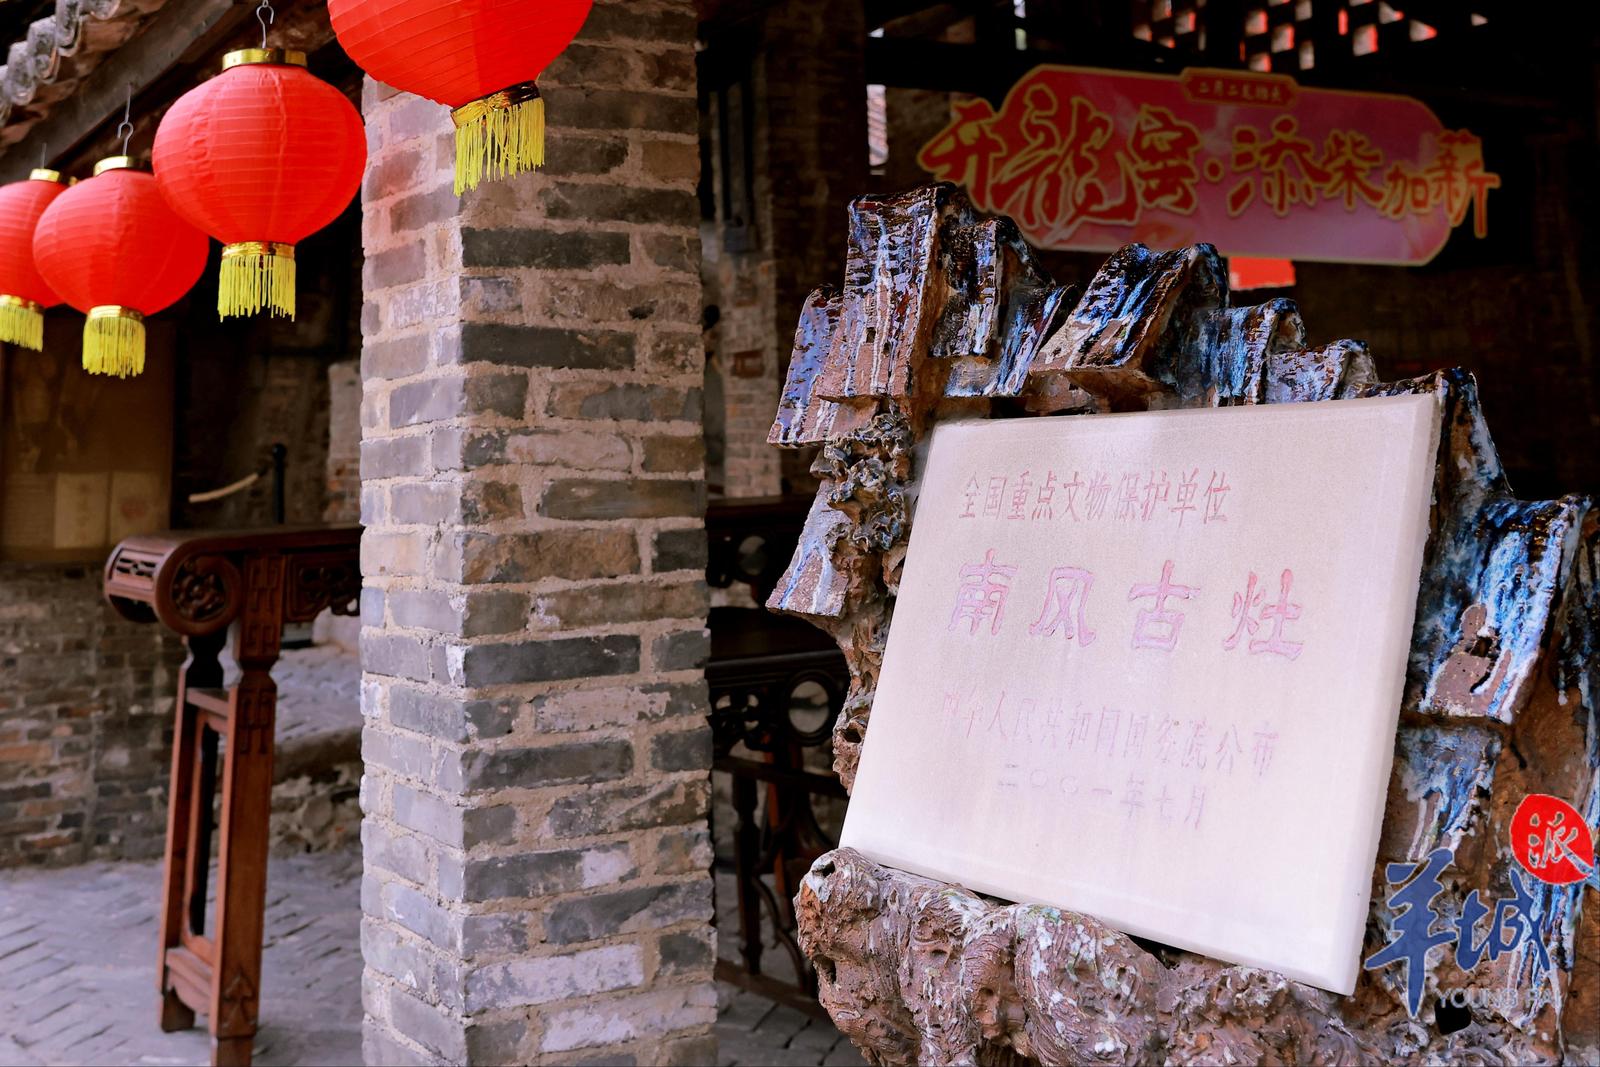 二月二龙抬头
开龍窑·添柴加薪
全国重点文物保护单位
南风古灶
中华人民共和国国务院公布
二〇〇一年七月
羊城派
YOUNG PAI